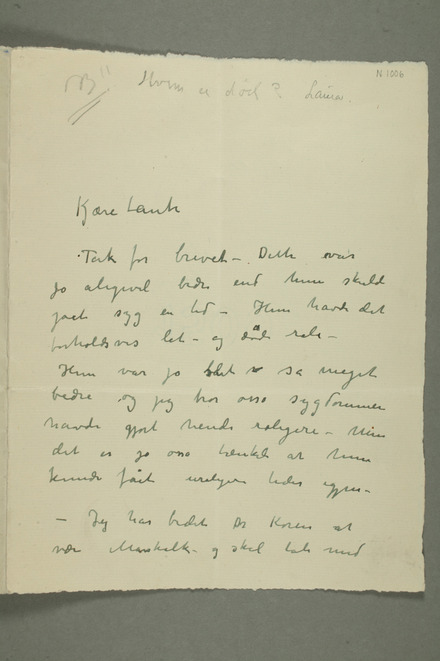 N 1006
NB!! Hvem er död? Laura.
Kjære Tante
Tak for brevet – Dette var
jo aligevel bedre end hun skulde
gaat syg en tid – Hun havde det
forholdsvis let – og döde rolig –
Hun var jo blet så meget
bedre og jeg tror osso sygdommen
havde gjort hende roligere – Men
det er jo osso tænkelig at hun
kunde fåt urolige tider igjen –
– Jeg har bedet Dr Koren at
være – og skal tale med